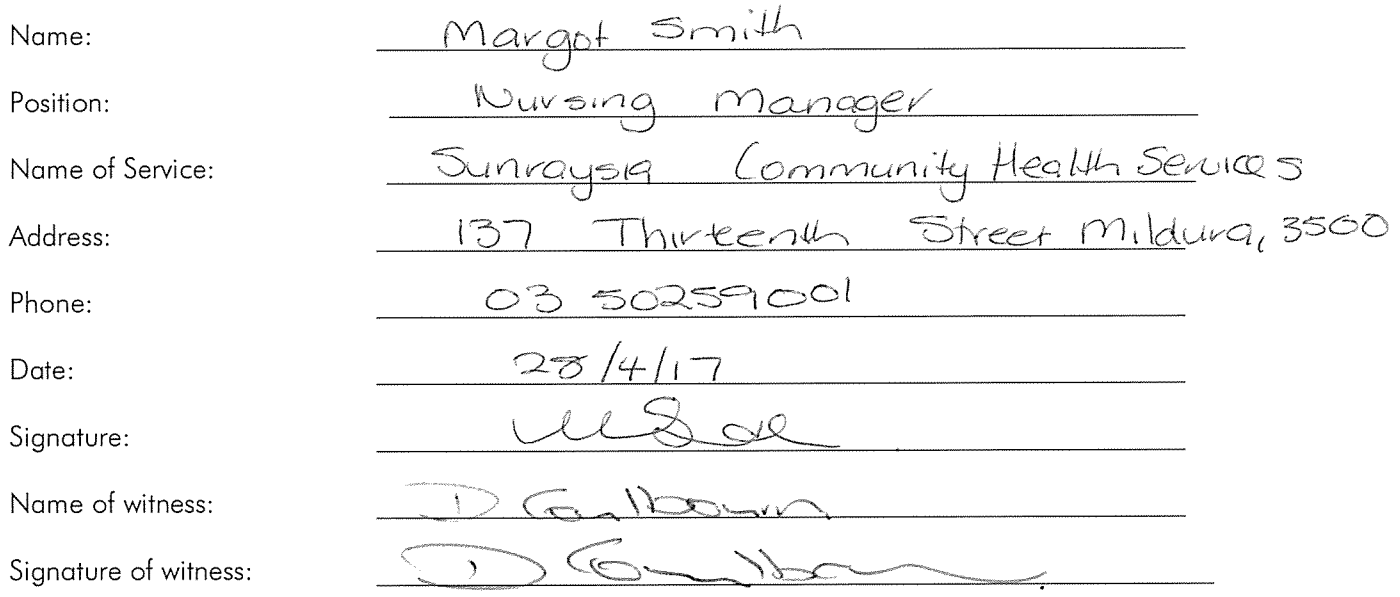 Name: Margot Smith
Position: Nursing Manager
Name of Service: Sunraysia Community Health Services
Address: 137 Thirteenth Street Mildura, 3500
Phone: 03 50259001
Date: 28/4/17
Signature:
Name of witness: D
Signature of witness: D